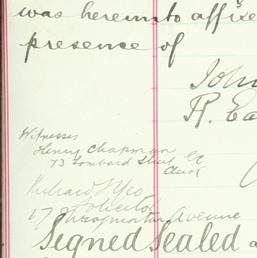 was hereunto affixe
presence of
John
R. Ea
Witnesses
Henry Chapman
73 Lombard Street EC
Clerk
Richard J Yeo
Solicitor
17 Avenue
Signed Sealed a